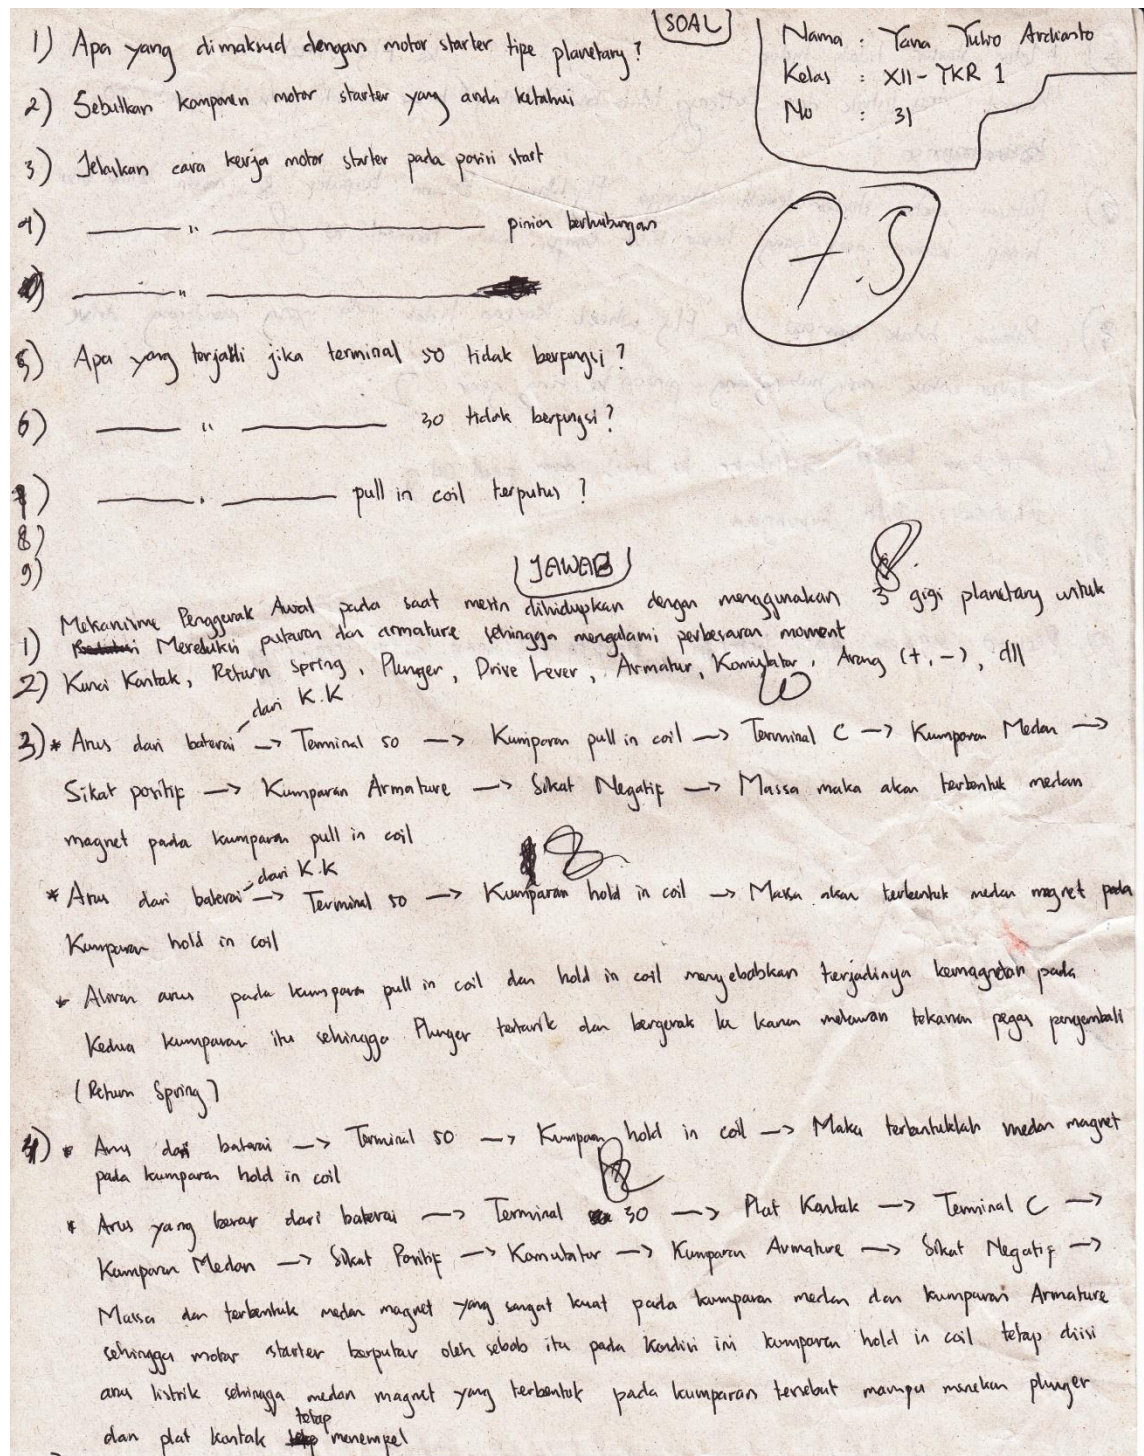 [SOAL]
Nama : Yana Yulio Ardianto
Kelas : XII - TKR 1
No : 31
1) Apa yang dimaksud dengan motor starter tipe planetary?
2) Sebutkan komponen motor starter yang anda ketahui
3) Jelaskan cara kerja motor starter pada posisi start
4) ——— " ——— pinion berhubungan
——— " ———
7.5
5) Apa yang terjadi jika terminal 50 tidak berfungsi?
6) ——— " ——— 30 tidak berfungsi?
7) ——— " ——— pull in coil terputus?
8)
9)
[JAWAB]
8
1) Mekanisme Penggerak Awal pada saat mesin dihidupkan dengan menggunakan 3 gigi planetary untuk
Mereduksi putaran dan armature sehingga mengalami perbesaran moment
2) Kunci Kontak, Return Spring, Plunger, Drive Lever, Armatur, Komutator, Arang (+, -), dll
10
3) * Arus dari baterai dari K.K —> Terminal 50 —> Kumparan pull in coil —> Terminal C —> Kumparan Medan —>
Sikat positif —> Kumparan Armature —> Sikat Negatif —> Massa maka akan terbentuk medan
magnet pada kumparan pull in coil
8
* Arus dari baterai dari K.K —> Terminal 50 —> Kumparan hold in coil —> Massa akan terbentuk medan magnet pada
Kumparan hold in coil
* Aliran arus pada kumparan pull in coil dan hold in coil menyebabkan terjadinya kemagnetan pada
Kedua kumparan itu sehingga Plunger tertarik dan bergerak ke kanan melawan tekanan pegas pengembali
(Return Spring)
4) * Arus dari baterai —> Terminal 50 —> Kumparan hold in coil —> Maka terbentuklah medan magnet
pada kumparan hold in coil
* Arus yang besar dari baterai —> Terminal 30 —> Plat Kontak —> Terminal C —>
Kumparan Medan —> Sikat Positif —> Komutator —> Kumparan Armature —> Sikat Negatif —>
Massa dan terbentuk medan magnet yang sangat kuat pada kumparan medan dan kumparan Armature
sehingga motor starter berputar oleh sebab itu pada kondisi ini kumparan hold in coil tetap diisi
arus listrik sehingga medan magnet yang terbentuk pada kumparan tersebut mampu menekan plunger
dan plat kontak tetap menempel